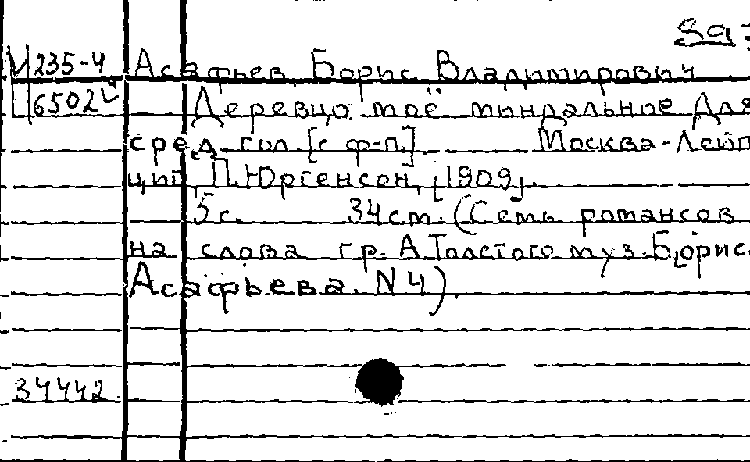 235-4 Асафьев Борис Владимирович
6502 Деревцо моё миндальное Для
сред. гол. [с ф-п.] Москва-Лейп
циг, П. Юргенсон, [1909].
5 с. 34 см. (Семь романсов
на слова гр. А. Толстого муз. Борис.
Асафьева. N 4).
34442